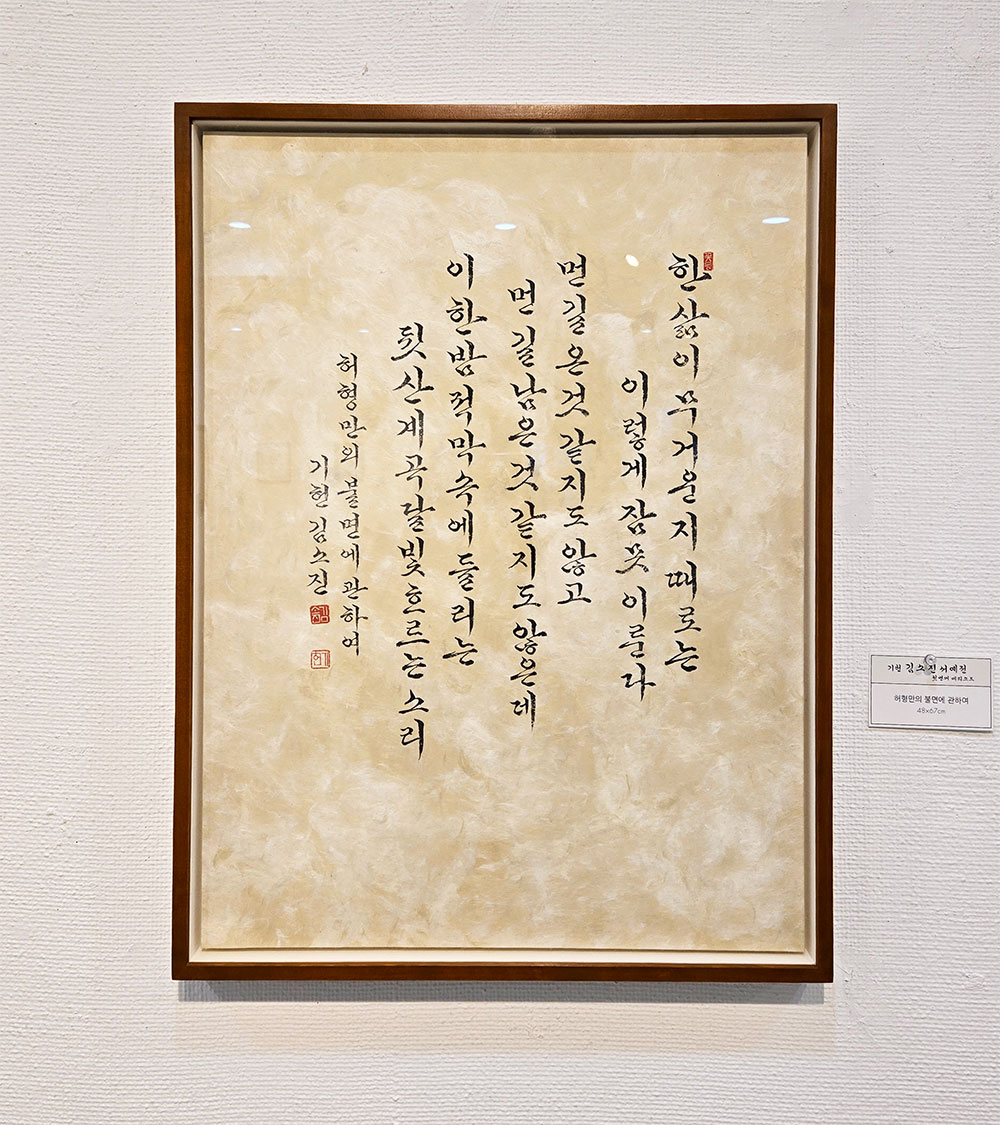 한삶이무거운지때로는
이렇게잠못이룬다
먼길온것같지도않고
먼길남은것같지도않은데
이한밤적막속에들리는
뒷산계곡달빛흐르는소리
허형만의불면에관하여
기헌김소진
기헌 김소진 서예전
허형만의 불면에 관하며
48x67cm